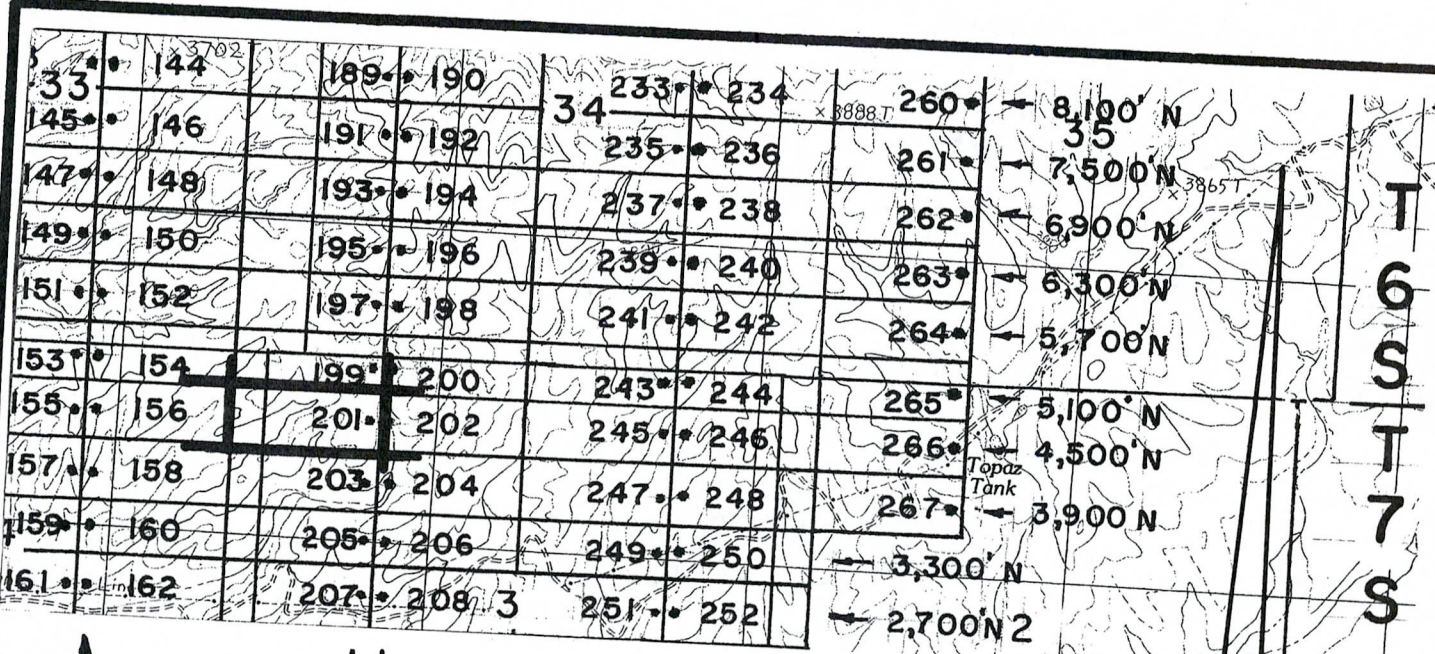 33 144 × 3702 189 190 34 233 234 × 3888 T 260 8,100' N
35
145 146 191 192 235 236 261 7,500' N
3865 T
147 148 193 194 237 238 262 6,900' N
149 150 195 196 239 240 263 6,300' N
151 152 197 198 241 242 264 5,700' N
153 154 199 200 243 244 265 5,100' N
155 156 201 202 245 246 266 4,500' N
Topaz
Tank
157 158 203 204 247 248 267 3,900 N
159 160 205 206 249 250 3,300' N
161 162 207 208 3 251 252 2,700' N 2
T
6
S
T
7
S